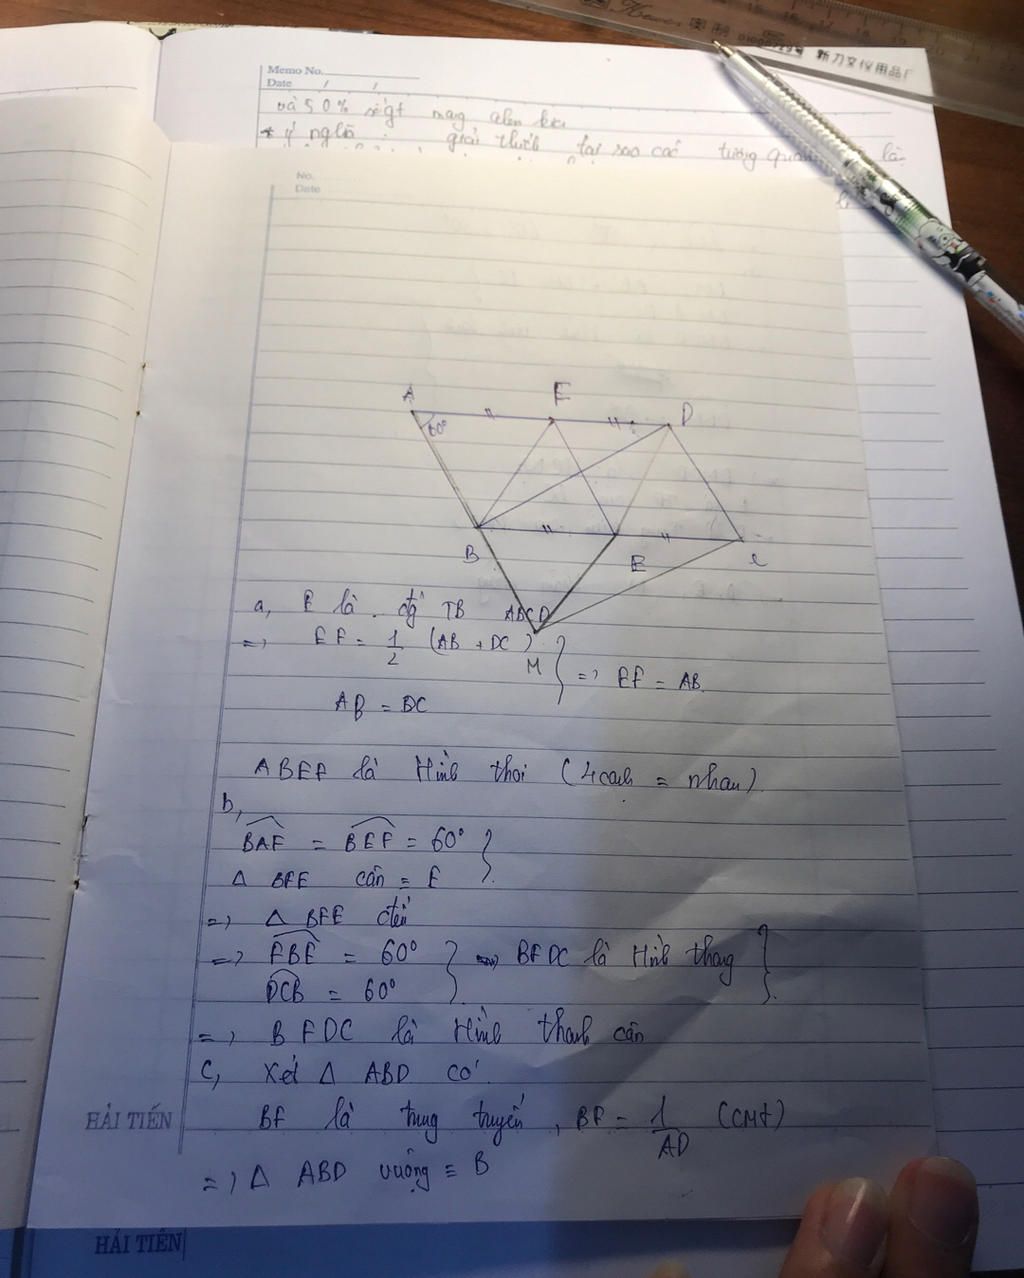 Memo No.
Date / /
và 50%
* ý nghĩa : giải thích tại sao các tương quan là
No.
Date
A F D
60°
B E C
M
a, E là đg TB ABCD
=> EF = 1/2 (AB + DC) } => EF = AB.
AB = DC
ABEF là Hình thoi (4 cạnh = nhau)
b,
BAF = BEF = 60° }
Δ BFE cân ≡ E
=> Δ BFE đều
=> FBE = 60° } => BFDC là Hình thang }
DCB = 60°
=> BFDC là Hình thanh cân
C, Xét Δ ABD có
BF là trung truyến, BF = 1/AD (CMt)
=> Δ ABD vuông ≡ B
HẢI TIẾN
HẢI TIẾN